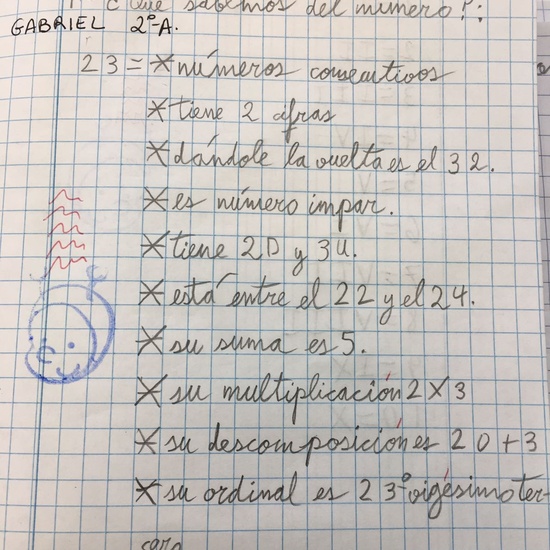 ¿Qué sabemos del número?:
GABRIEL 2º-A.
23 = * números consecutivos
* tiene 2 cifras
* dándole la vuelta es el 32.
* es número impar.
* tiene 2D y 3U.
* está entre el 22 y el 24.
* su suma es 5.
* su multiplicación 2 X 3
* su descomposición es 20+3
* su ordinal es 23º vigésimo ter-
cero